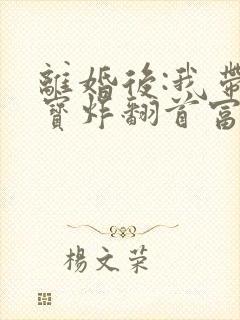 離婚後:我帶
寶炸翻首富
楊文荣